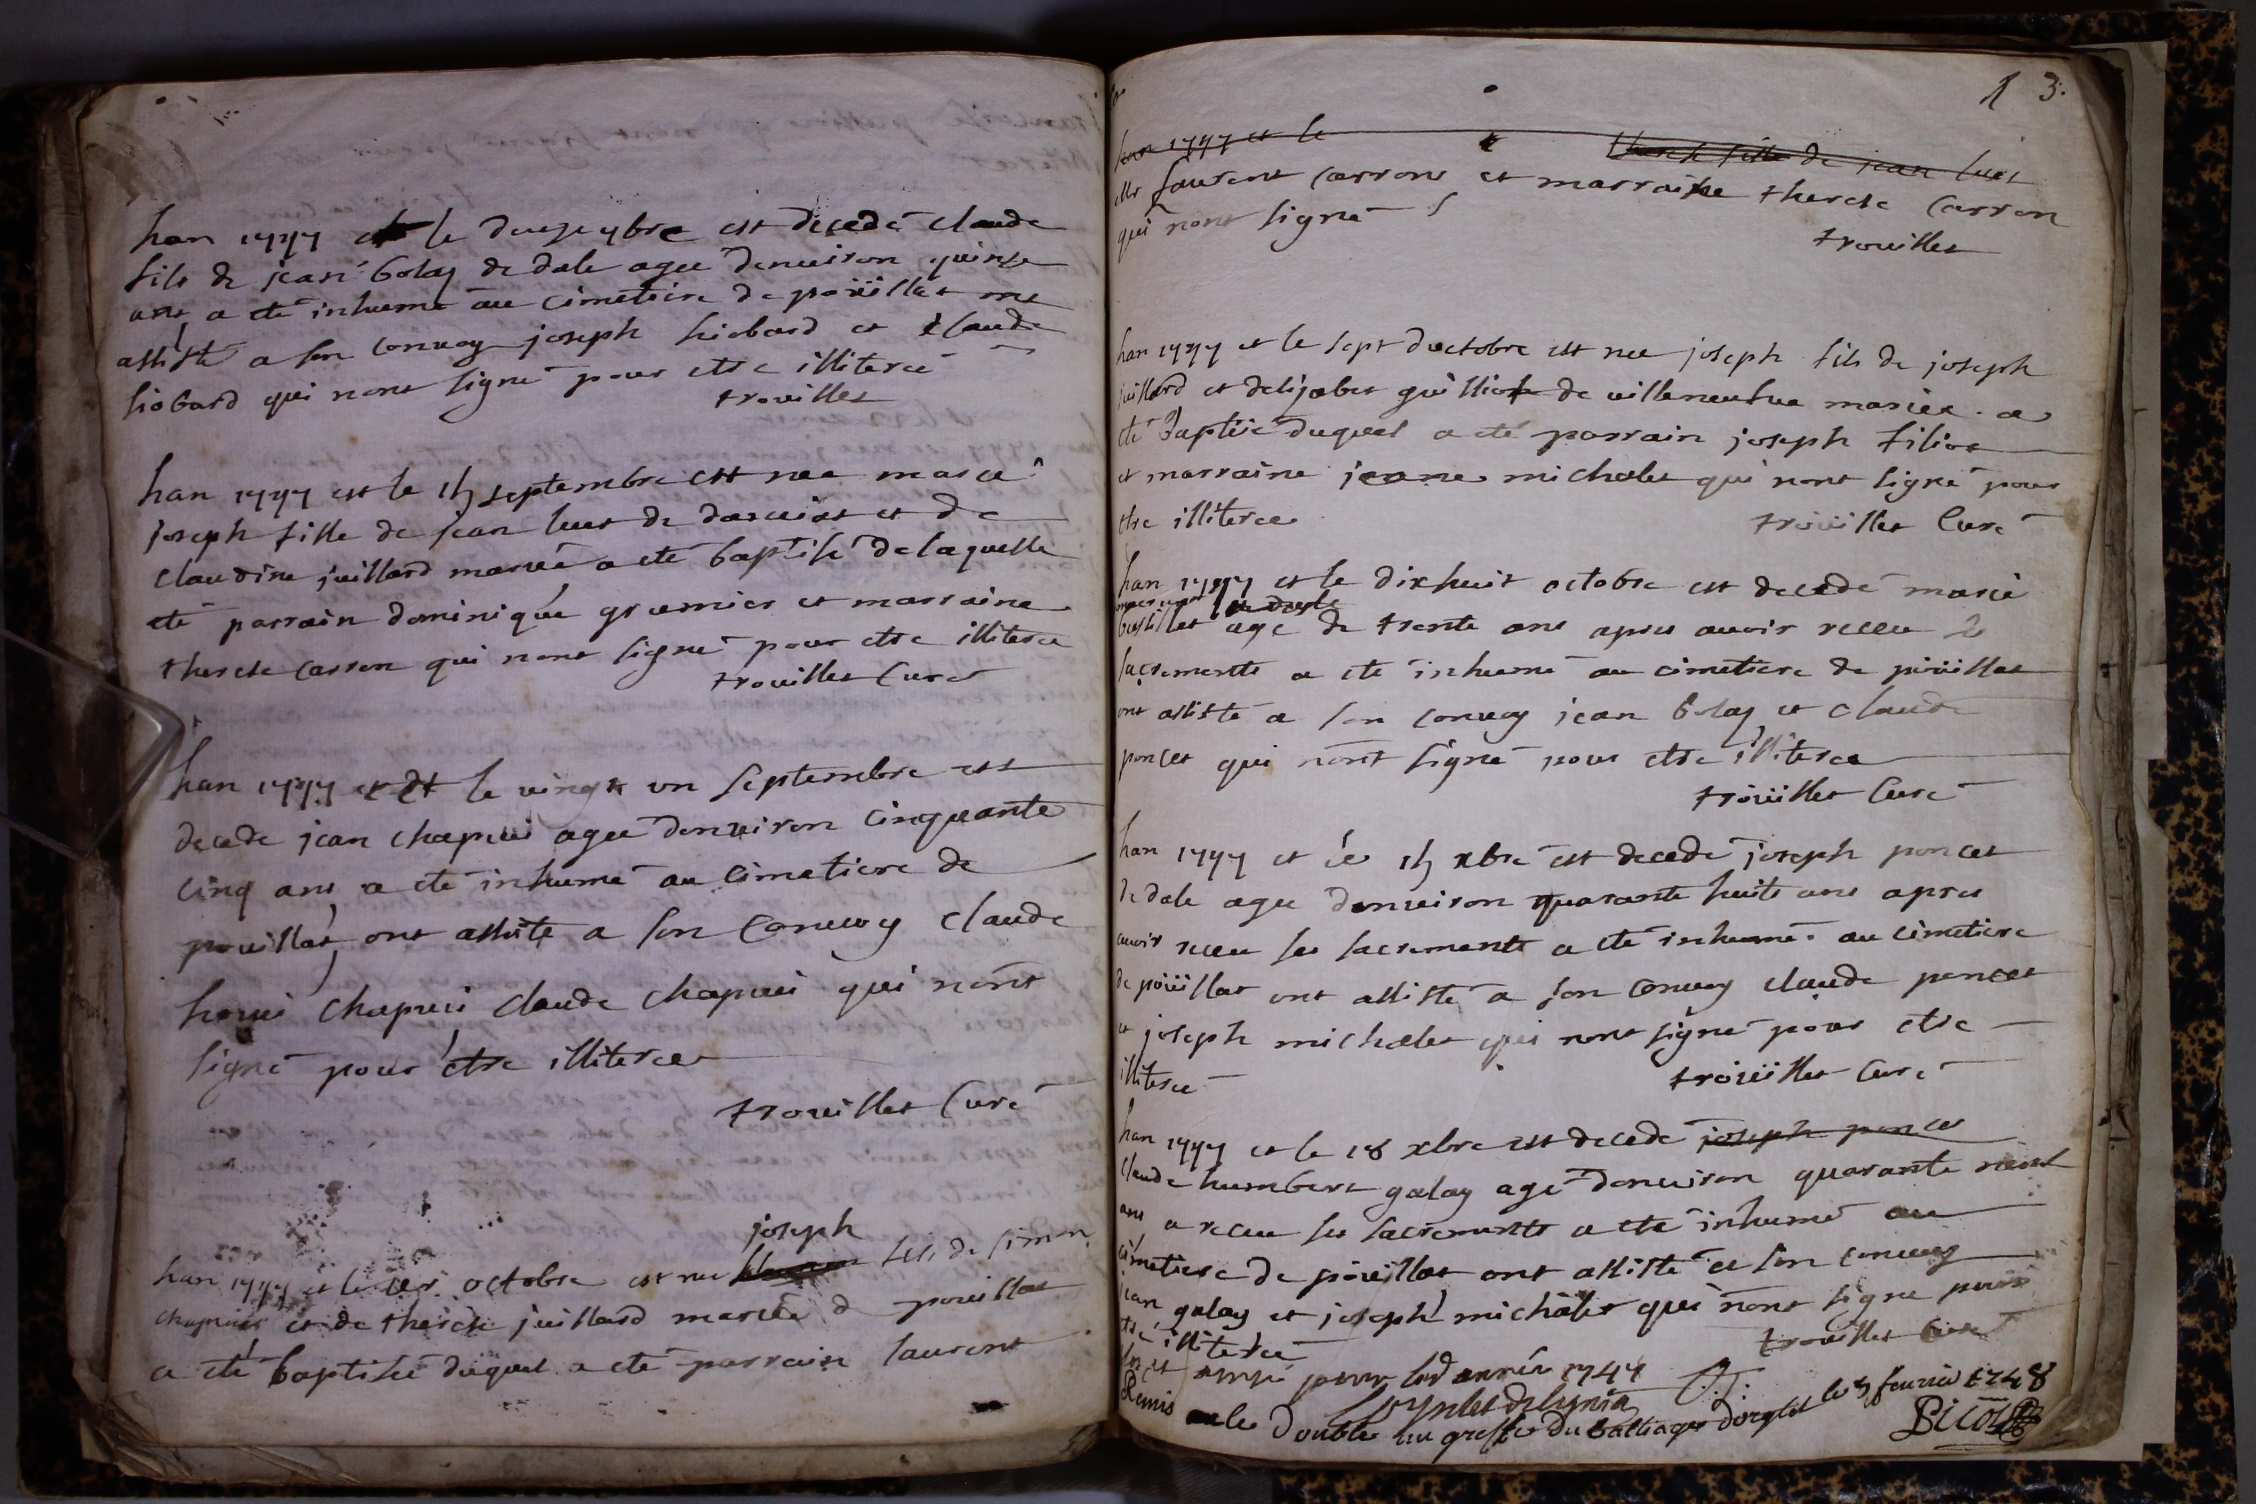 han 1747 et le douze 9bre est decedé claude
fils de jean bolay de dale agee denuiron quinse
ans a ete inhumé au cimetiere de poüillat ont
assisté a son conuoy joseph hiobard et claude
hiobard qui nont signé pour etre illiteree
trouillet
han 1747 est le 15 septembre est nee marie
joseph fille de jean luet de daruiat et de
claudine juillard mariée a ete baptisé delaquelle
eté parrain dominique grumier et marraine
therese carron qui nont signé pour etre illiteree
trouillet Curé
han 1747 et le vingt un septembre est
decede jean chapuis agee denuiron cinquante
cinq ans a eté inhumé au cimetiere de
pouillat ont assisté a son conuoy claude
henri chapuis claude chapuis qui nont
signé pour etre illiteree
trouillet Curé
joseph
han 1747 et le 1er octobre est nee fils de simon
chapuis et de therese juillard mariée d pouillat
a eté baptisée duquel a eté parrain laurent
13.
han 1747 et le fille de jean luet
laurent carron et marraine therese carron
qui nont signé
trouillet
han 1747 et le sept doctobre est nee joseph fils de joseph
juillard et delizabet guilliot de villeneufue mariee a
eté Baptisé duquel a eté parrain joseph filiod
et marraine jeanne michalet qui nont signé pour
etre illiteree
trouillet Curé
han 1747 et le dixhuit octobre est decedé marie
agé de trente ans apres auoir receu les
sacrements a eté inhumé au cimetiere de poüillat
ont assisté a son conuoy jean bolay et claude
poncet qui nont signé pour etre illiteree
troüillet Curé
han 1747 et le 15 xbre est decedé joseph poncet
de dale agee denuiron quarante huit ans apres
auoir receu les sacrements a eté inhumé au cimetiere
de poüillat ont assisté a son conuoy claude poncet
et joseph michalet qui nont signé pour etre
illiteree
troüillet Curé
han 1747 et le 18 xbre est decedé joseph poncet
claude humbert galay agé denuiron quarante neuf
ans a receu les sacrements a eté inhumé au
cimetiere de poüillat ont assisté a son conuoy
jean galay et joseph michalet qui nont signé pour
etre illiteree
trouillet Curé
pour lad année 1747
Remis le Double au greffe du Balliage dorgelet le 5 feurier 1748